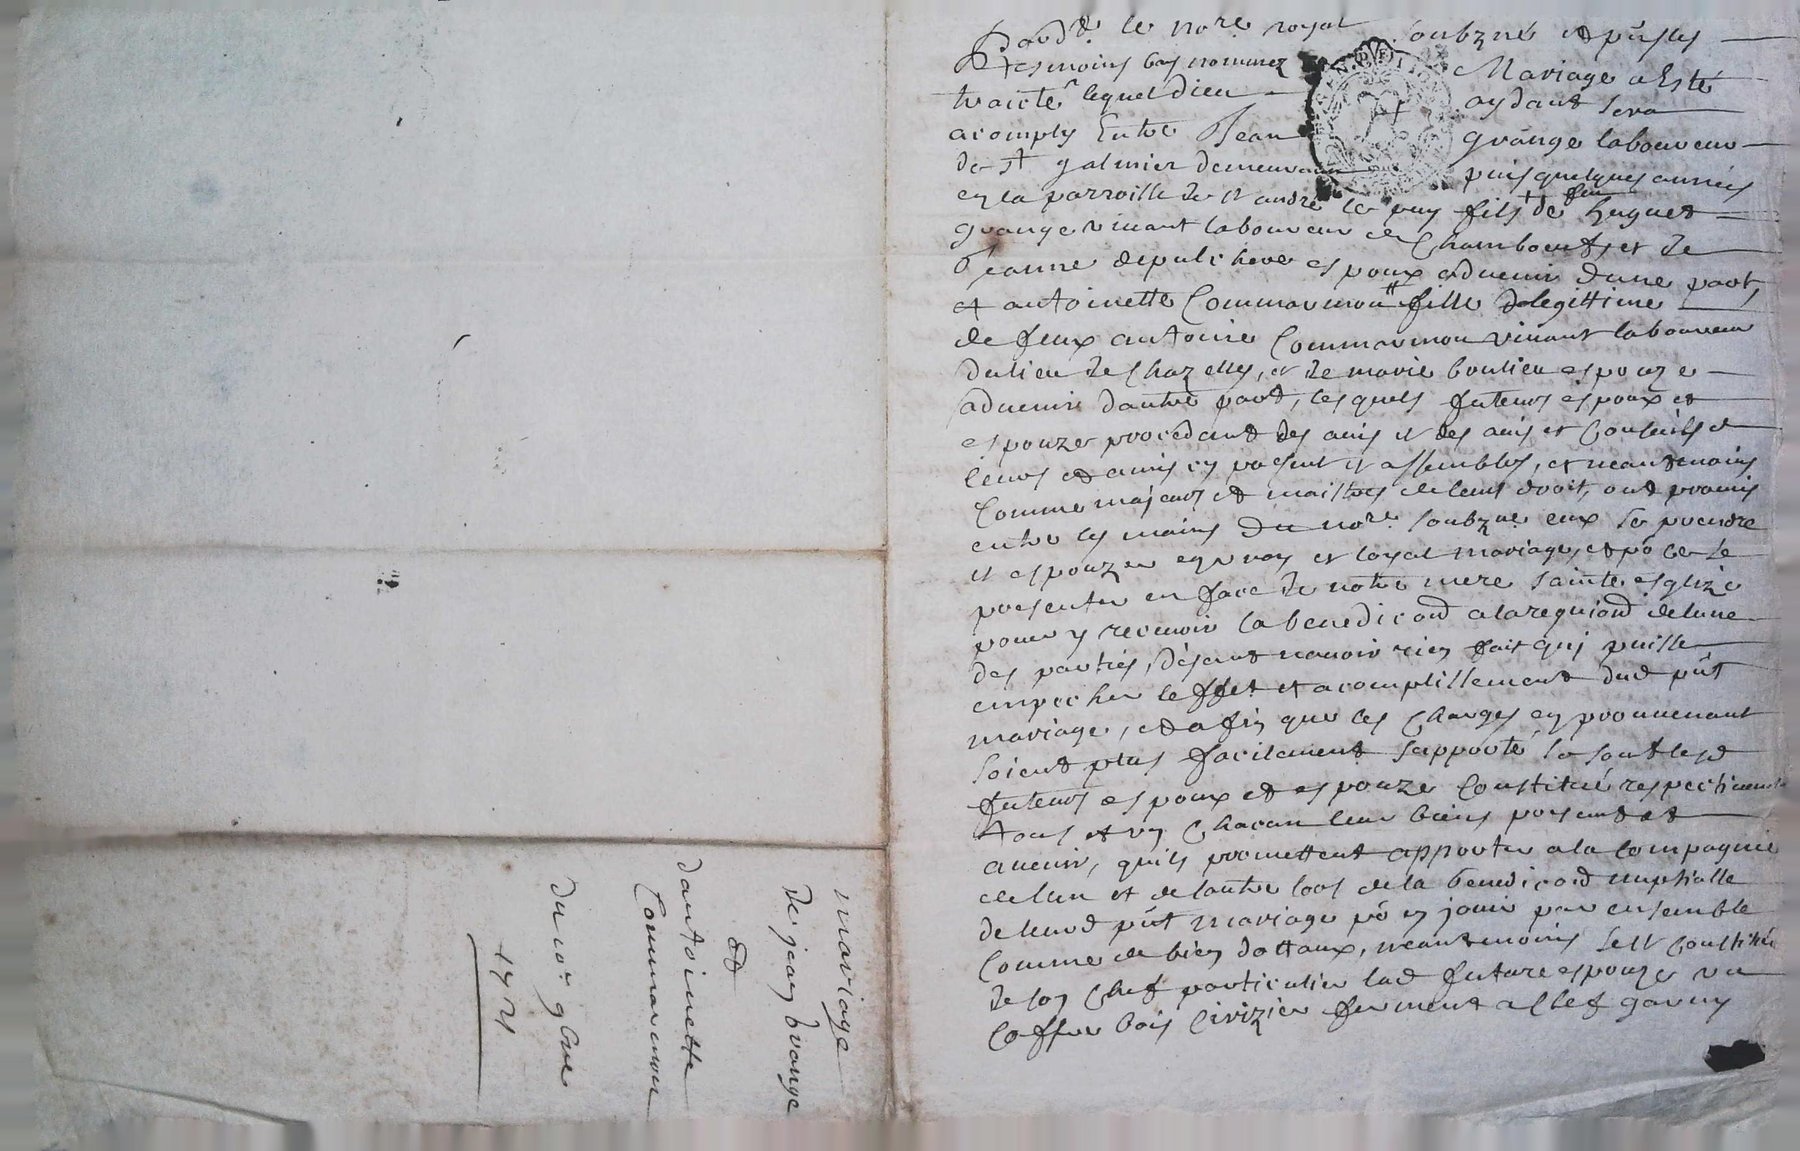 Pard.t le no.re royal soubzné et pñts les
tesmoins bas nommez Mariage a Esté
traicté lequel Dieu aydant sera
acomply Entre Jean grange laboureur
de St galmier demeurant puis quelques années
en la parroisse de St andré le puy fils + de feu huguet
grange vivant laboureur de Chamboeuf, et de
Jeanne depalchere espoux advenir dune part,
et antoinette Commarmon fille delegittime
de feux antoine Commarmon vivant laboureur
du lieu de Chazelles, et de marie boulieu espouze
advenir dautre part, lesquels futeurs espoux et
espouze procedant des avis et des avis et Conseils de
leurs et amis en presant et assemblés, et neantmoins
Comme majeurs et maistres de leurs droit, ont promis
entre les mains du no.re soubzné eux se prendre
et espouzer en vray et loyal mariage, et pō ce se
presenter en face de notre mere sainte esglize
pour y recevoir la benediçõn a la requiõn de lune
des parties, disant navoir rien fait qui puisse
empecher leffet et acomplissement dud pñt
mariage, et afin que les Charges en provenant
soient plus facilement supporté se sont lesd
futeurs espoux et espouze Constitué respectivem.t
tous et un Chacun leur biens presents et
avenir, quils promettent apporter a la Compagnie
de lun et de lautre lors de la benediçõn nuptialle
de leurd pñt mariage pō en jouir par ensemble
Comme de bien dottaux, neantmoins sest Constitué
de son Chef particulier lad future espouze un
Coffre bois Cirizier fermant a Clef garny
mariage
de jean Grange
et
dantoinette
Commarmon
Du 10e 9bre
1721